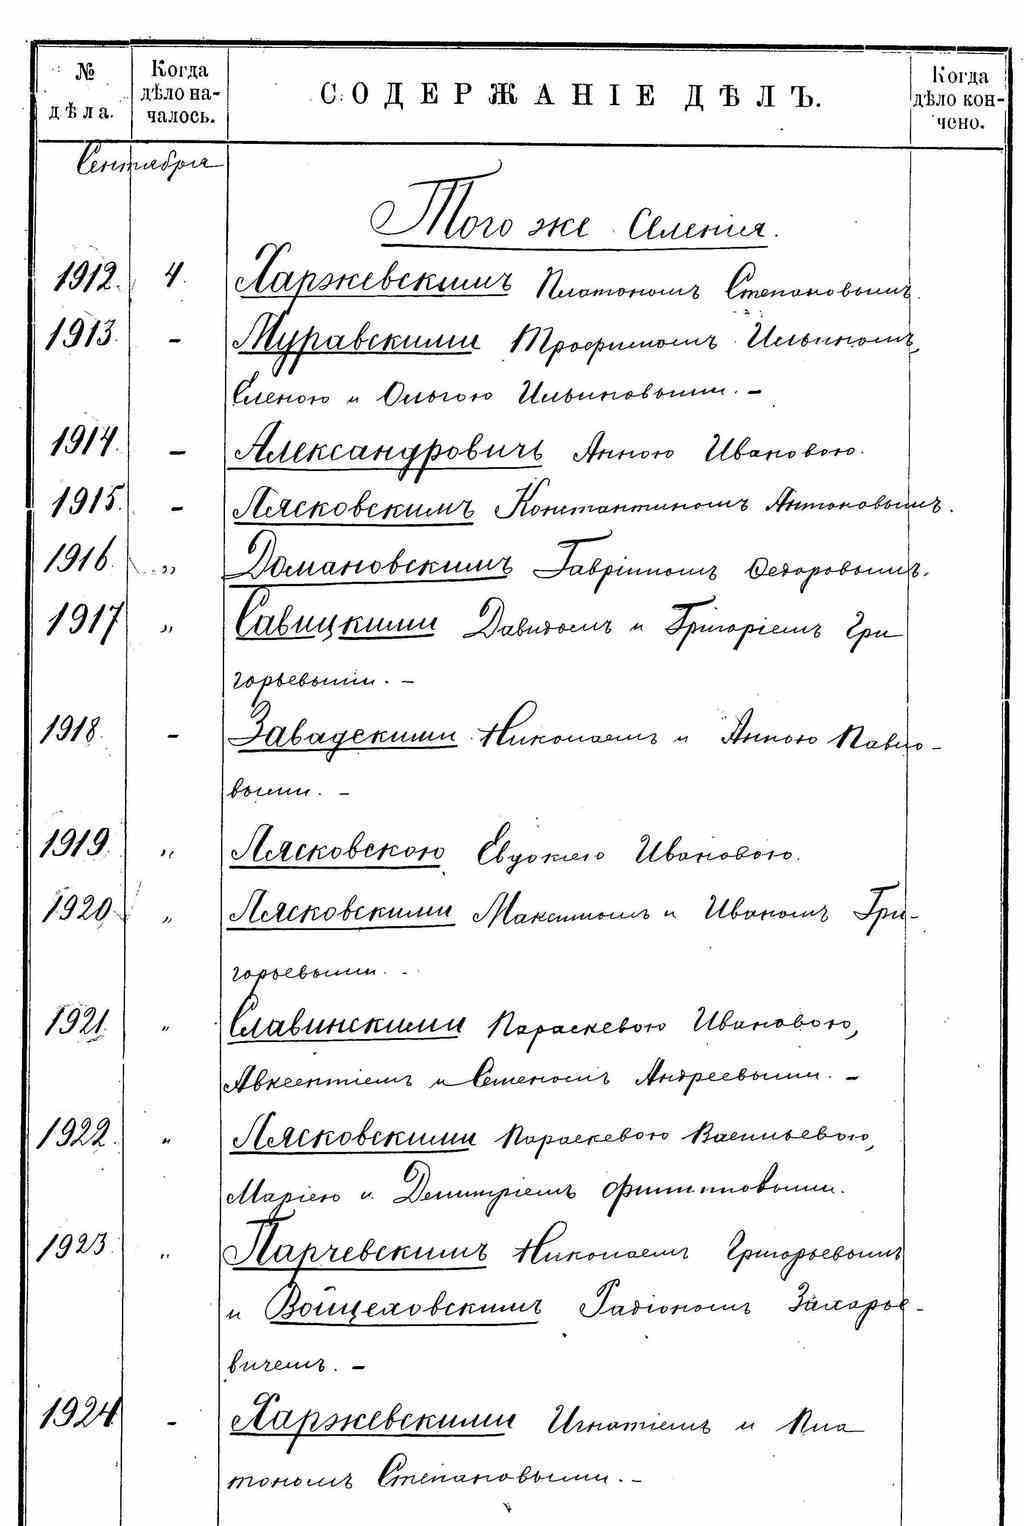 № дѣла. Когда дѣло на- чалось. СОДЕРЖАНІЕ ДѢЛЪ. Когда дѣло кон- чено.
Сентября
Того же Селенія.
1912. 4. Харжевскимъ Платономъ Степановымъ.
1913. - Муравскими Трофимомъ Ильиномъ,
Еленою и Ольгою Ильиновыми. -
1914. - Александровичъ Анною Ивановою.
1915. - Лясковскимъ Константиномъ Антоновымъ.
1916. „ Домановскимъ Гавріиломъ Федоровымъ.
1917 „ Савицкими Давидомъ и Григоріемъ Гри
горьевыми. -
1918. - Завадскими Николаемъ и Анною Павло-
выми. -
1919. „ Лясковскою Евдокіею Ивановою.
1920 „ Лясковскими Максимомъ и Иваномъ Гри-
горьевыми. -
1921. „ Славинскими Параскевою Ивановою,
Авксентіемъ и Семеномъ Андреевыми. -
1922. „ Лясковскими Параскевою Васильевою,
Маріею и Демитріемъ Филипповыми.
1923. „ Парчевскимъ Николаемъ Григорьевымъ
и Войцеховскимъ Радіономъ Захарье-
вичемъ. -
1924 - Харжевскими Игнатіемъ и Пла
тономъ Степановыми. -